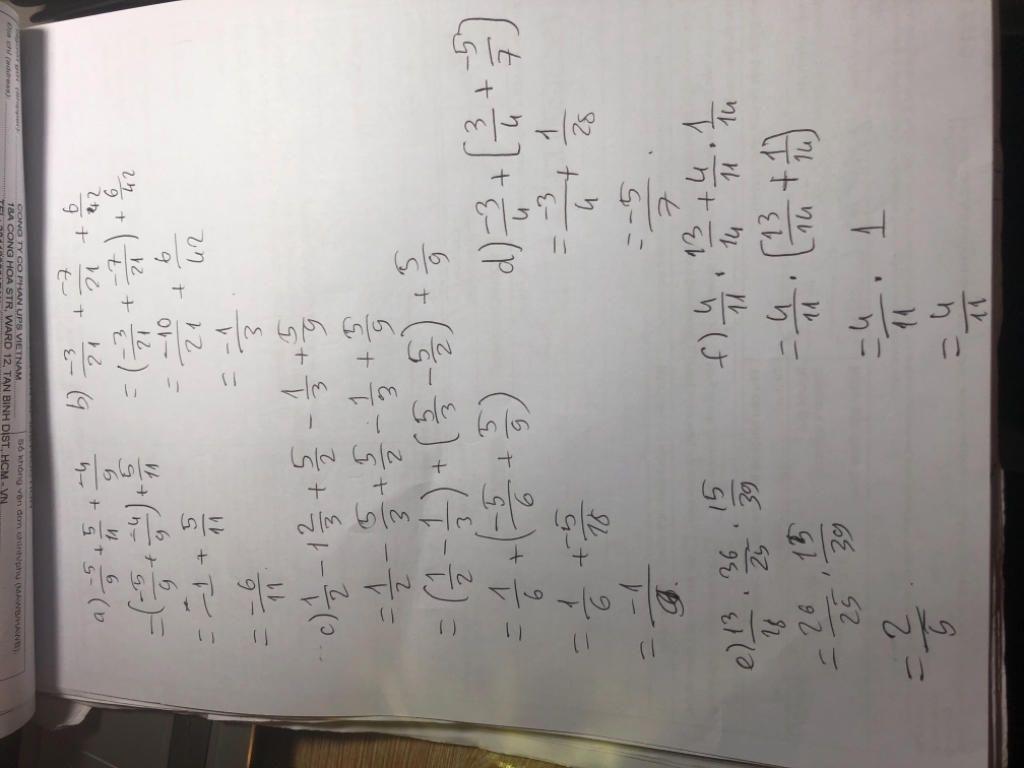 a) -5/9 + 5/11 + -4/9
= (-5/9 + -4/9) + 5/11
= -1 + 5/11
= -6/11
b) -3/21 + -7/21 + 6/42
= (-3/21 + -7/21) + 6/42
= -10/21 + 6/42
= -1/3
c) 1/2 - 1 2/3 + 5/2 - 1/3 + 5/9
= 1/2 - 5/3 + 5/2 - 1/3 + 5/9
= (1/2 - 1/3) + (5/3 - 5/2) + 5/9
= 1/6 + (-5/6 + 5/9)
= 1/6 + -5/18
= -1/9.
d) -3/4 + (3/4 + -5/7)
= -3/4 + 1/28
= -5/7.
e) 13/18 . 36/25 . 15/39
= 26/25 . 15/39
= 2/5
f) 4/11 . 13/14 + 4/11 . 1/14
= 4/11 . (13/14 + 1/14)
= 4/11 . 1
= 4/11
CONG TY CO PHAN UPS VIETNAM
18A CONG HOA STR, WARD 12, TAN BINH DIST, HCM - VN
Địa chỉ (Address):